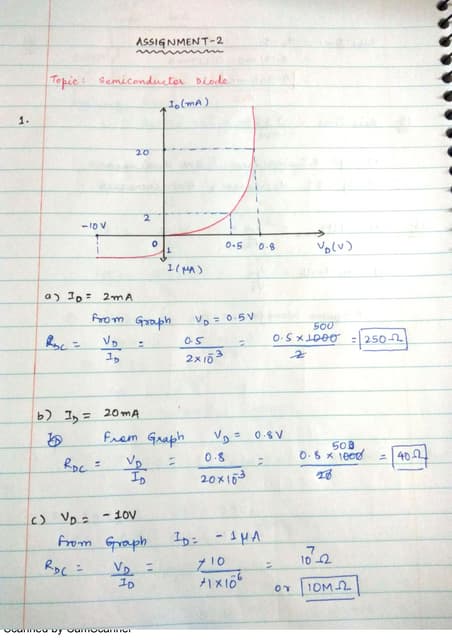 ASSIGNMENT-2
Topic: Semiconductor Diode
1.
I_D(mA)
20
2
-10V
0
1
0.5 0.8 V_D(V)
I(μA)
a) I_D = 2mA
From Graph V_D = 0.5V
R_DC = V_D/I_D = 0.5/2×10^-3 = 0.5 × 1000/2 = 250Ω
500
b) I_D = 20mA
From Graph V_D = 0.8V
R_DC = V_D/I_D = 0.8/20×10^-3 = 0.8 × 1000/20 = 40Ω
c) V_D = -10V
From Graph I_D = -1μA
R_DC = V_D/I_D = -10/-1×10^-6 = 10^7 Ω
or 10MΩ
Scanned by CamScanner